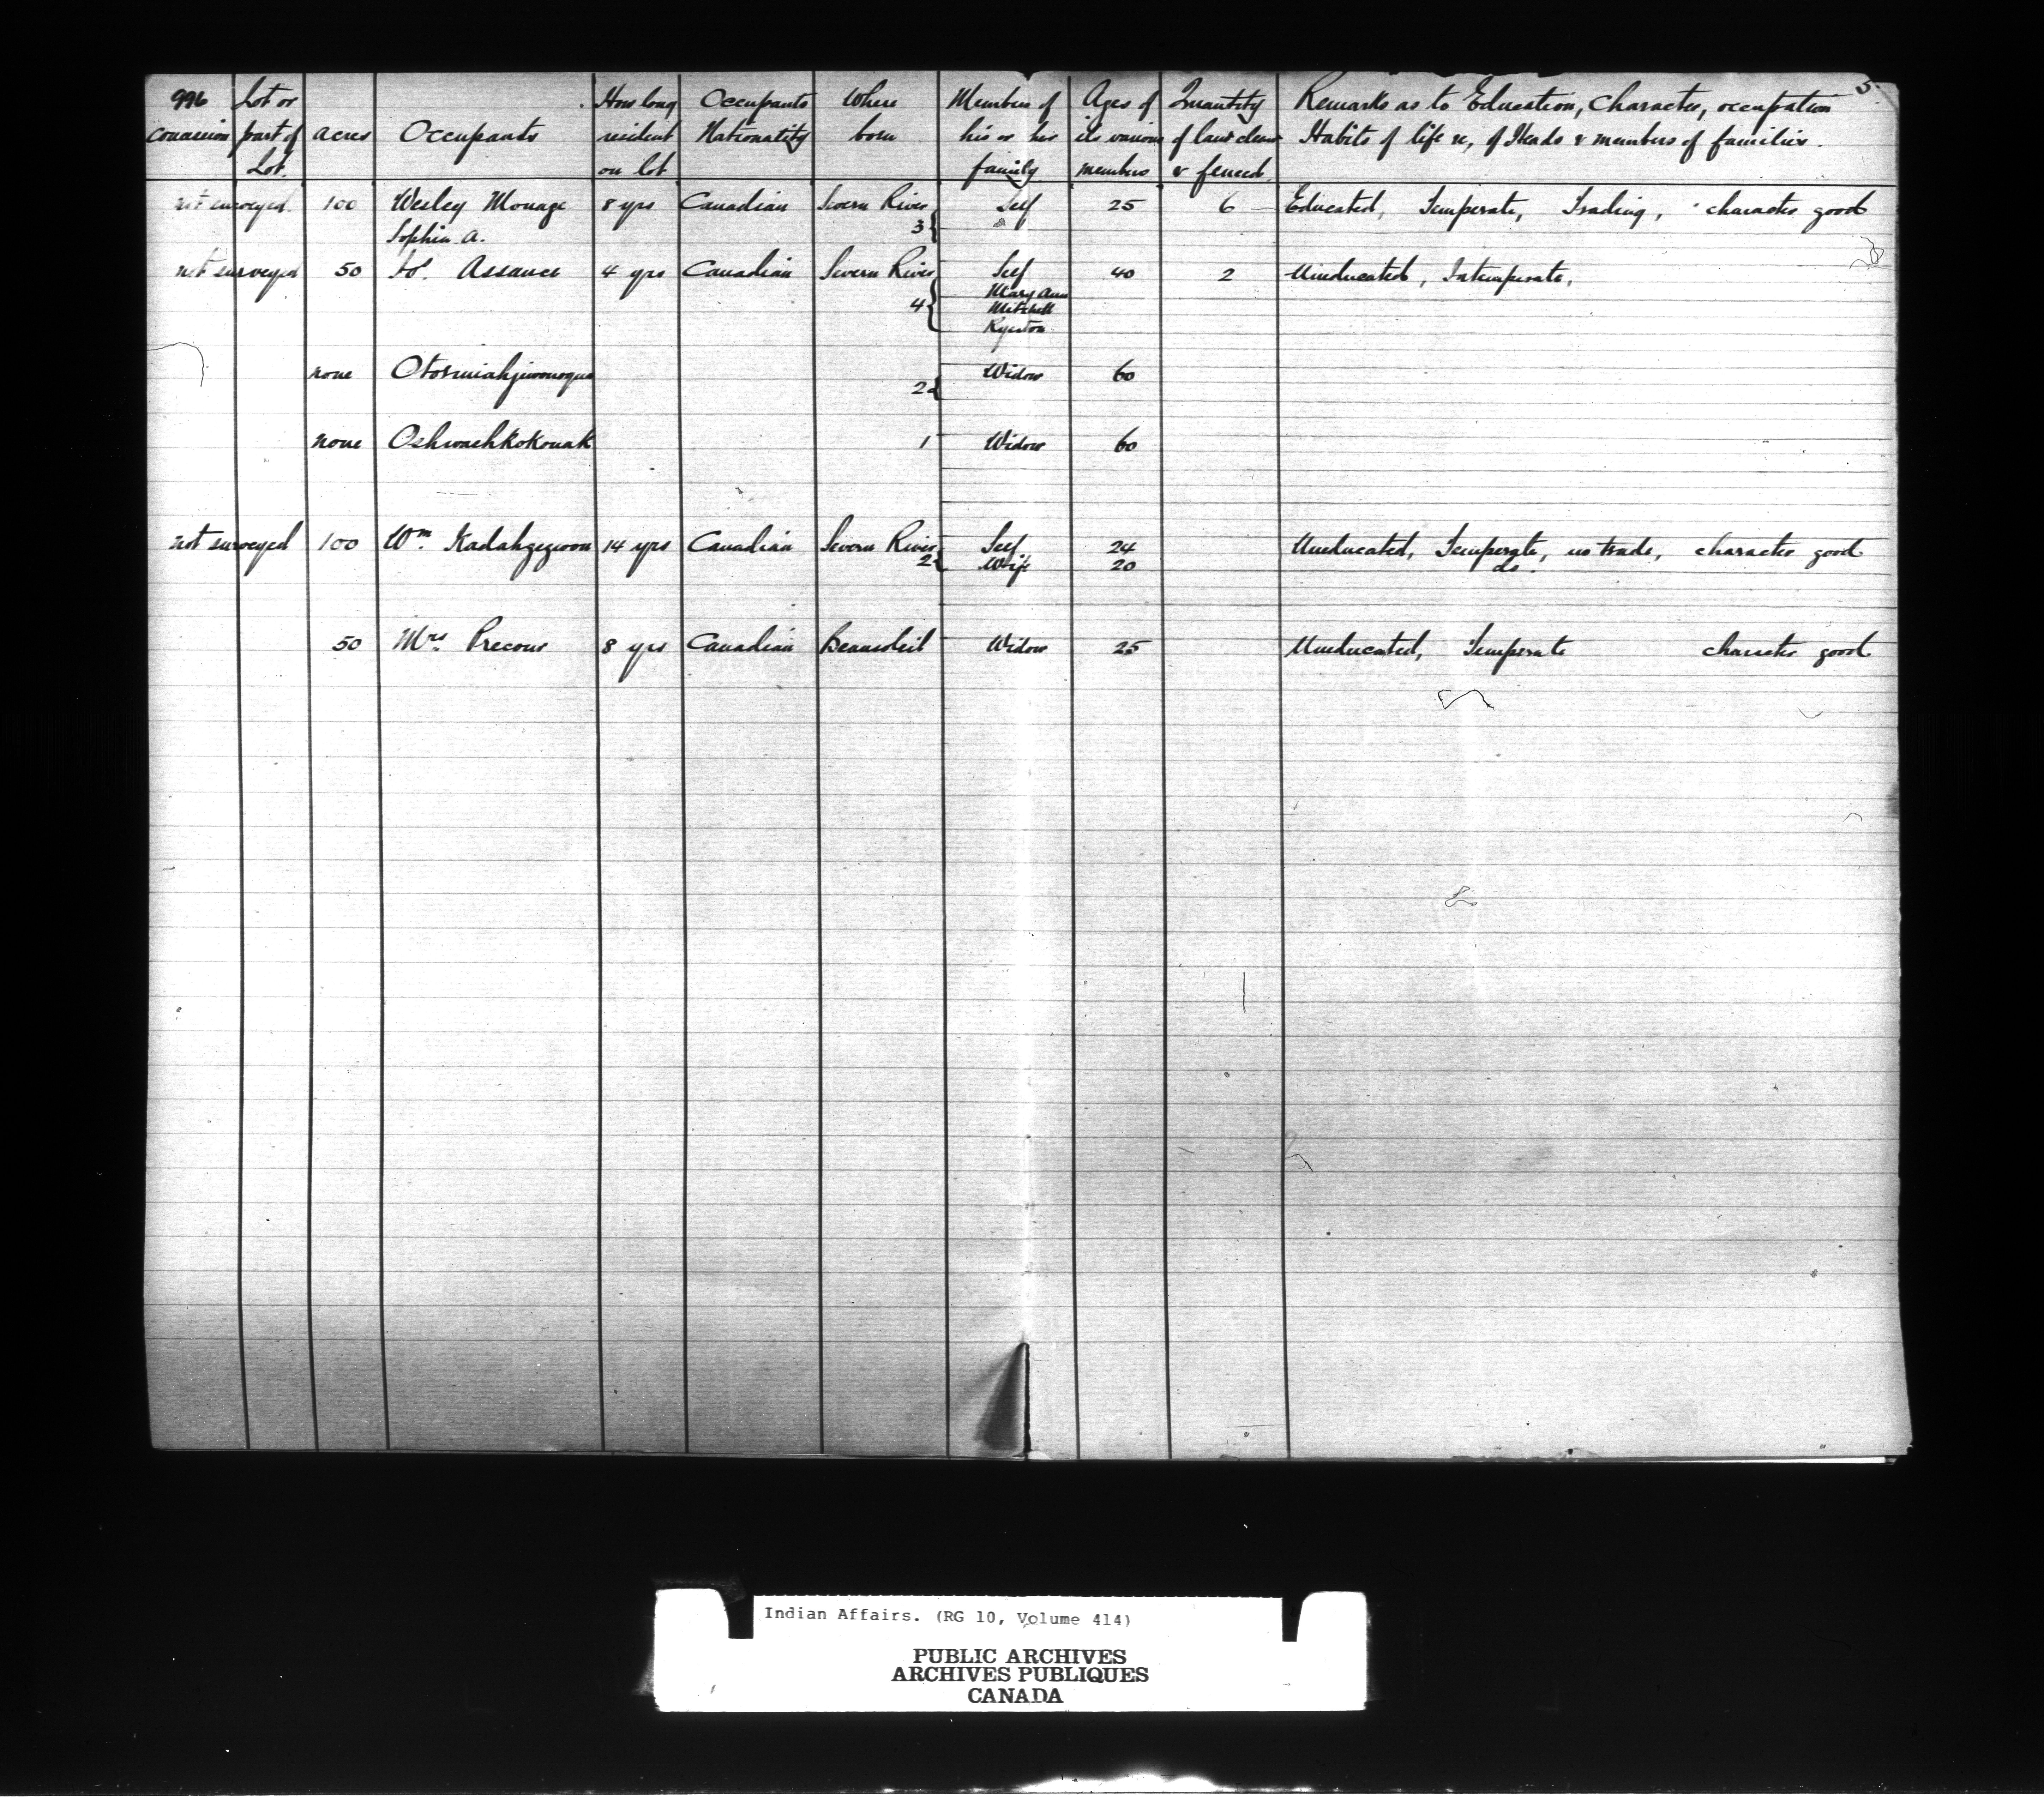 996 Lot or How long Occupants Where Members of Ages of Quantity Remarks as to Education, Character, occupation 5.
concession part of acres Occupants resident Nationality born his or her its various of land clear Habits of life &c, of Heads & members of families.
Lot. on lot family members & fenced.
not surveyed. 100 Wesley Monage 8 yrs Canadian Severn River Self 25 6 Educated, Temperate, Trading, character good
Sophia A. 3
not surveyed 50 Assance 4 yrs Canadian Severn River Self 40 2 Uneducated, Intemperate,
Mary Ann
4 Mitchell
Ryerton
none Widow 60
2
none Oshwashkokouak 1 Widow 60
not surveyed 100 Wm. Kadahgegwon 14 yrs Canadian Severn River Self. 24 Uneducated, Temperate, no trade, character good
2 Wife 20 do.
50 Mrs. Precour 8 yrs Canadian Beausoleil Widow 25 Uneducated, Temperate character good
Indian Affairs. (RG 10, Volume 414)
PUBLIC ARCHIVES
ARCHIVES PUBLIQUES
CANADA